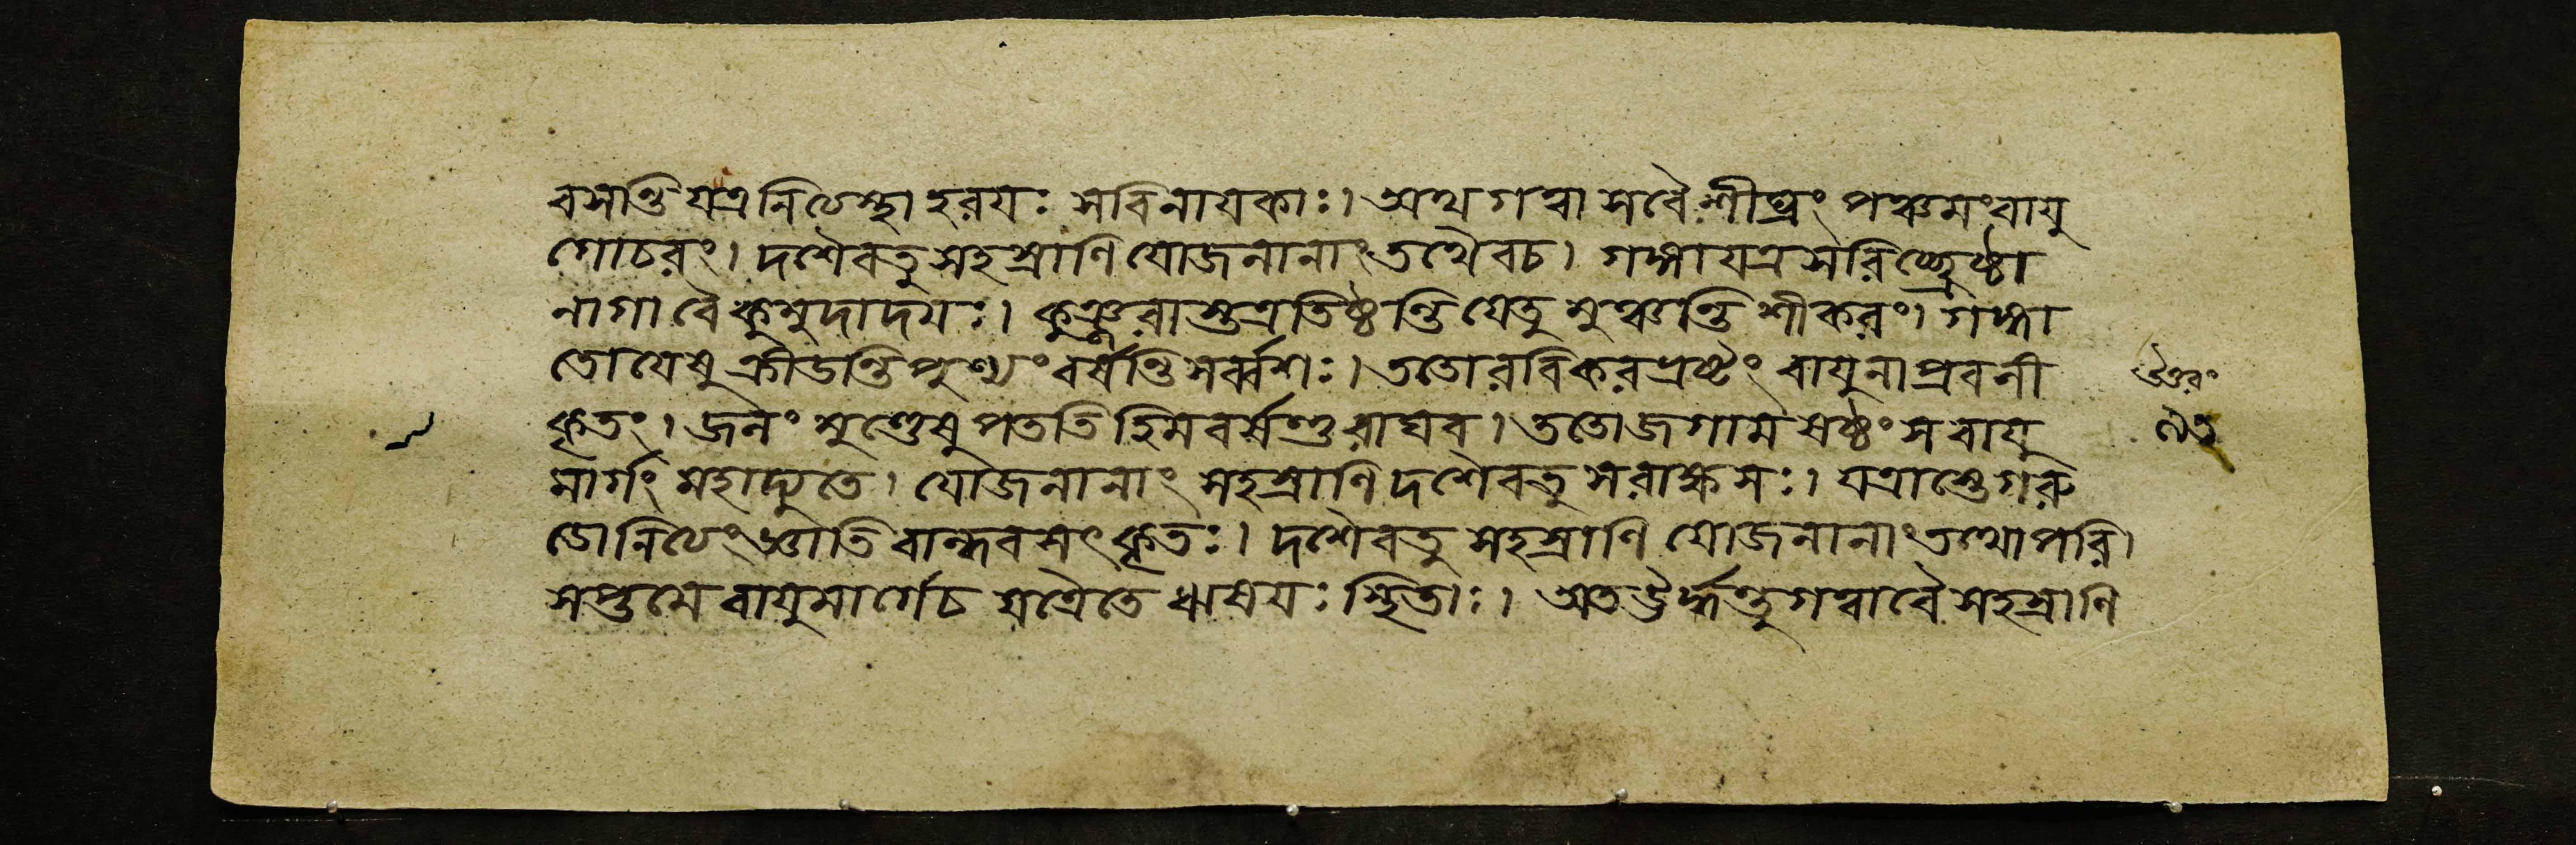 বসন্তি যত্র নিত্যস্থা হরযঃ সবিনাযকাঃ। অথ গত্বা সবৈ শীঘ্রং পঞ্চমং বাযু
গোচরং। দশৈবতু সহস্রাণি যোজনানাং তথৈবচ। গঙ্গা যত্র সরিচ্ছ্রেষ্ঠা
নাগা বৈ কুমুদাদযঃ। কুঞ্জরাস্তত্র তিষ্ঠন্তি যেতু মুঞ্চন্তি শীকরং। গঙ্গা
তোযেষু ক্রীডন্তি পুণ্যং বর্ষন্তি সর্ব্বশঃ। ততো রবিকরভ্রষ্টং বাযুনা প্রবনী
কৃতং। জলং মুণ্ডেষু পততি হিমবর্ষন্তু রাঘব। ততো জগাম ষষ্ঠং স বাযু
মার্গং মহাদ্যুতে। যোজনানাং সহস্রাণি দশৈবতু স রাক্ষসঃ। যত্রাস্তে গরু
ডো নিত্যং জ্ঞাতিবান্ধবসৎকৃতঃ। দশৈবতু সহস্রাণি যোজনানাং তথোপরি।
সপ্তমে বাযুমার্গেচ যত্রৈতে ঋষযঃ স্থিতাঃ। অতঊর্দ্ধন্তু গত্বাবৈ সহস্রাণি